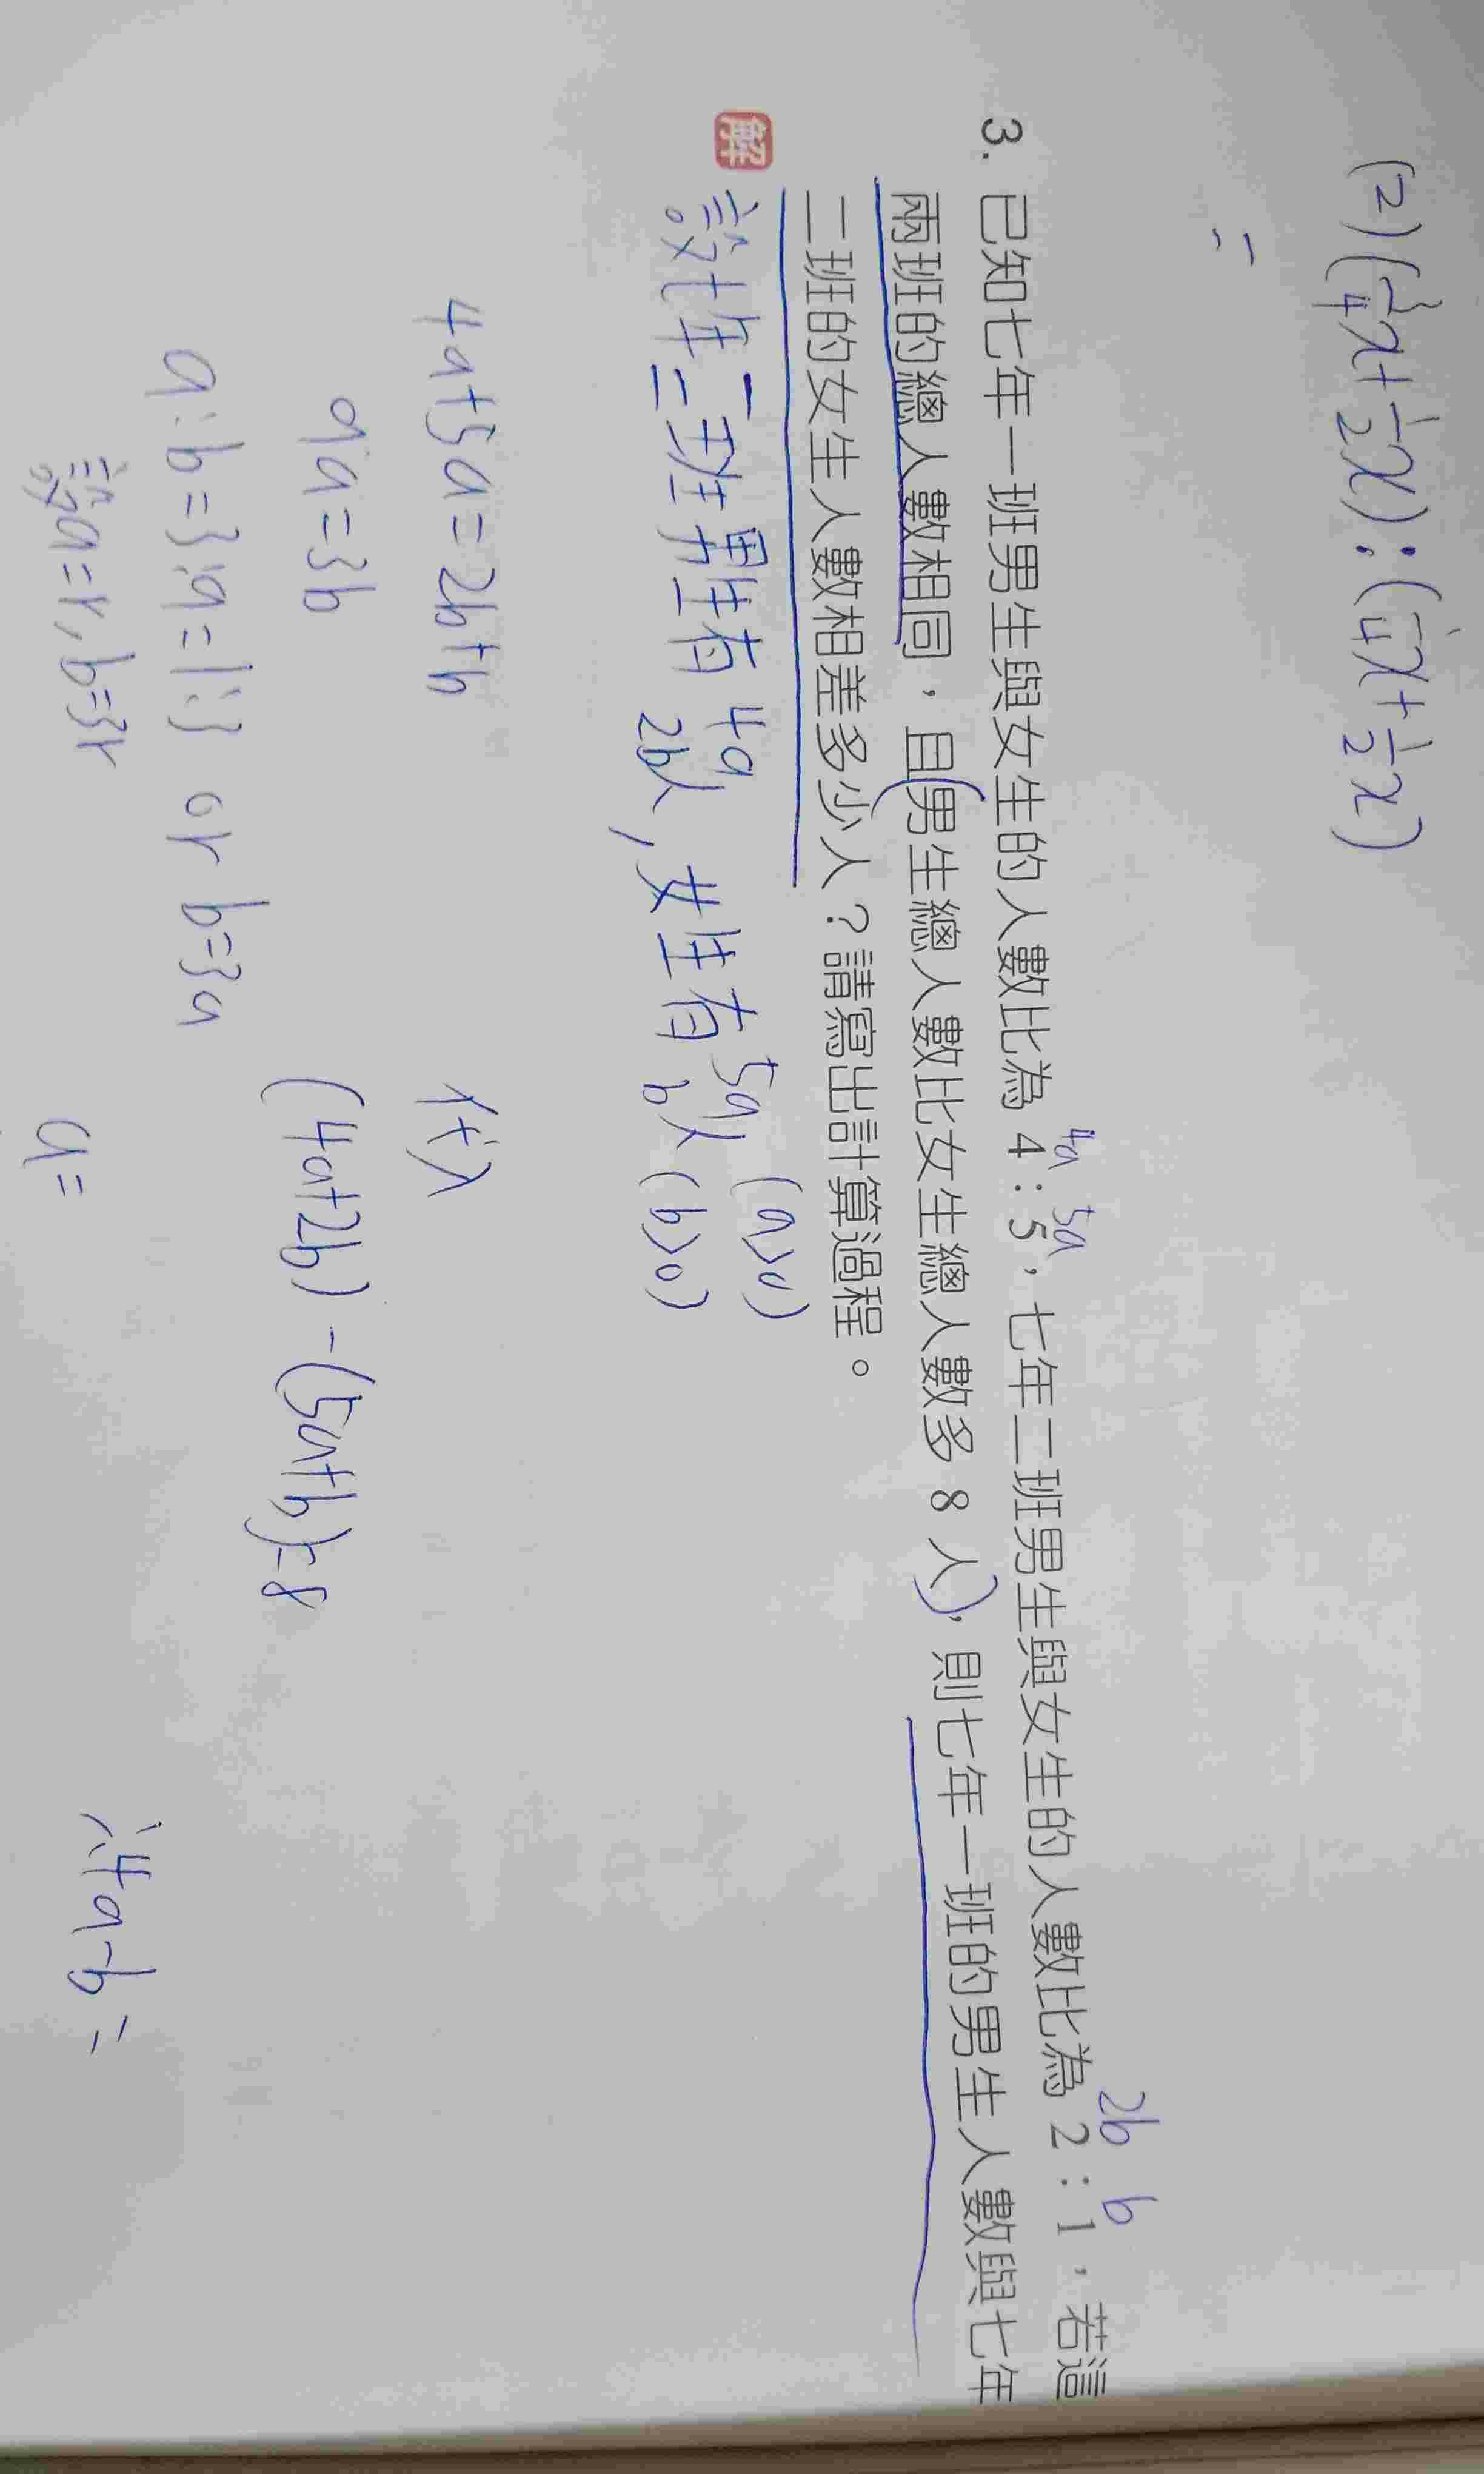 (2) (3/4x+1/2x):(1/4x+1/2x)
=
4a 5a 2b b
3. 已知七年一班男生與女生的人數比為 4：5，七年二班男生與女生的人數比為 2：1，若這
兩班的總人數相同，且(男生總人數比女生總人數多 8 人)，則七年一班的男生人數與七年
二班的女生人數相差多少人？請寫出計算過程。
解
設七年一班男生有4a 女生有5a人 (a>0)
二 2b人, b人 (b>0)
4a+5a=2b+b
代入
9a=3b
(4a+2b)-(5a+b)=8
a:b=3:9=1:3 or b=3a
設a=r, b=3r
a=
∴4a-b=